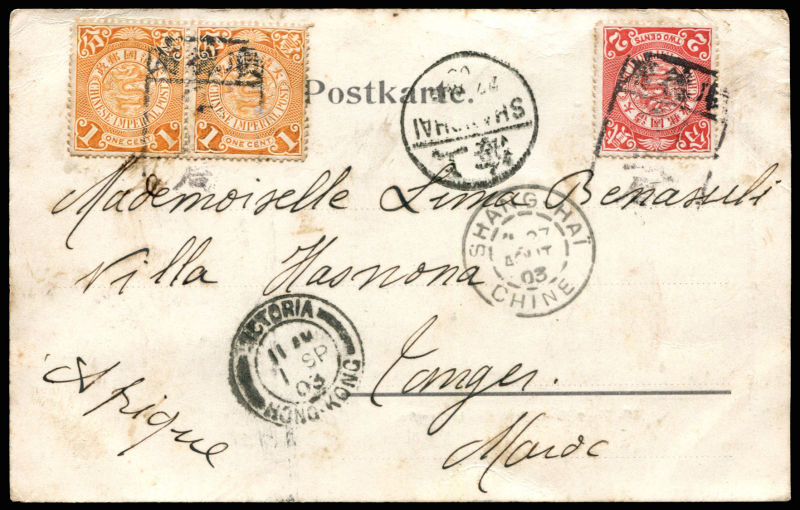 CHINESE IMPERIAL POST
1 ONE CENT 1
CHINESE IMPERIAL POST
1 ONE CENT 1
2 TWO CENTS 2
Postkarte.
27
SHANGHAI
Mademoiselle Lima Benassuli
SHANG-HAÏ
27
AOUT
03
CHINE
Villa Hasnona
VICTORIA
11 AM
1 SP
03
HONG-KONG
Afrique
Tanger.
Maroc